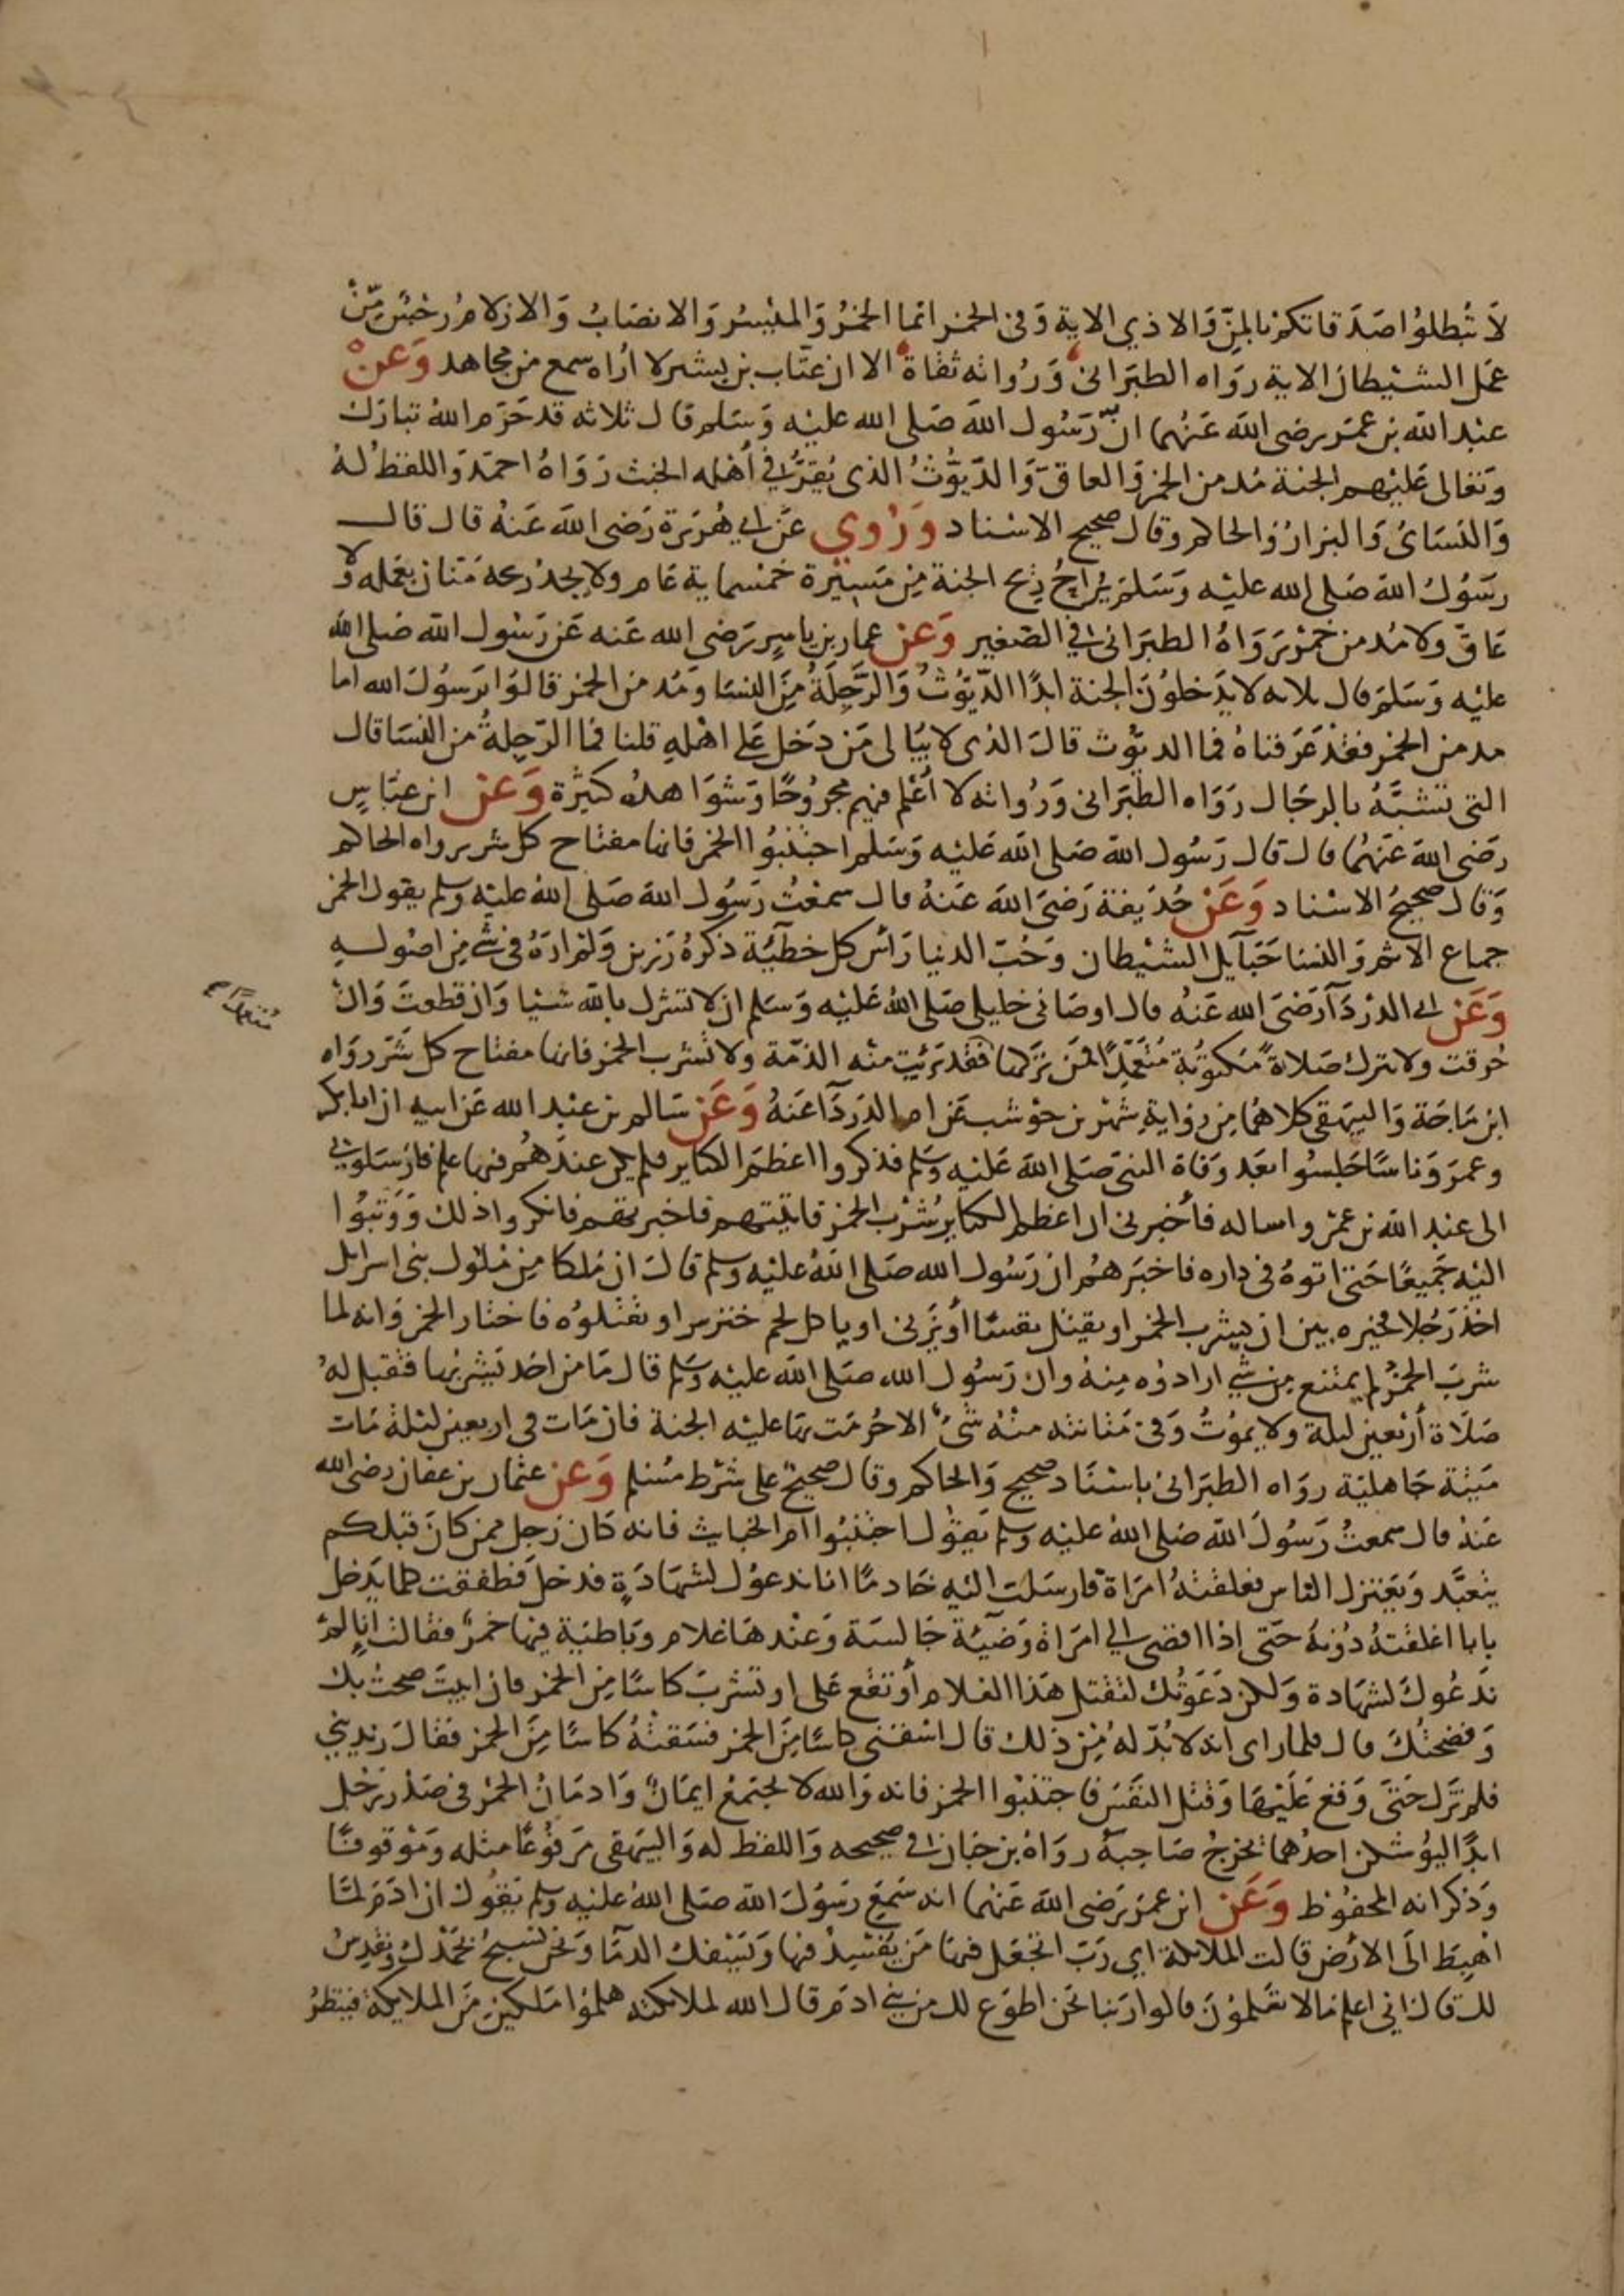 لا تبطلوا صدقاتكم بالمن والاذي الاية وفى الخمر انما الخمر والميسر والانصاب والازلام رجس من
عمل الشيطان الاية رواه الطبرانى ورواته ثقاة الا ان عتاب بن بشير لا اراه سمع من مجاهد وعن
عبد الله بن عمر رضى الله عنهما ان رسول الله صلى الله عليه وسلم قال ثلاثه قد حرم الله تبارك
وتعالى عليهم الجنة مدمن الخمر والعاق والديوث الذى يقر فى أهله الخبث رواه احمد واللفظ له
والنسائ والبزار والحاكم وقال صحيح الاسناد وروي عن ابي هريرة رضى الله عنه قال قال
رسول الله صلى الله عليه وسلم يراح ريح الجنة من مسيرة خمسماية عام ولا يجد ريحه منان بعمله ولا
عاق ولا مدمن خمر رواه الطبرانى فى الصغير وعن عمار بن ياسر رضى الله عنه عن رسول الله صلى الله
عليه وسلم قال ثلاثه لا يدخلون الجنة ابدا الديوث والرجلة من النسا ومدمن الخمر قالوا يرسول الله اما
مدمن الخمر فقد عرفناه فما الديوث قال الذى لا يبالى من دخل على اهله قلنا فما الرجلة من النسا قال
التى تتشبه بالرجال رواه الطبرانى ورواته لا أعلم فيهم مجروحا وشواهده كثيرة وعن ابن عباس
رضى الله عنهما قال قال رسول الله صلى الله عليه وسلم اجتنبوا الخمر فانها مفتاح كل شر رواه الحاكم
وقال صحيح الاسناد وعن حذيفة رضى الله عنه قال سمعت رسول الله صلى الله عليه وسلم يقول الخمر
جماع الاثم والنسا حبآيل الشيطان وحب الدنيا رأس كل خطيئة ذكره رزين ولم اره فى شي من اصوله
وعن ابي الدردآ رضى الله عنه قال اوصانى خليلى صلى الله عليه وسلم ان لا تشرك بالله شيا وان قطعت وان
حرقت ولا تترك صلاة مكتوبة متعمدا فمن تركها فقد برئت منه الذمة ولا تشرب الخمر فانها مفتاح كل شر رواه
ابن ماجة والبيهقى كلاهما من رواية شهر بن حوشب عن ام الدردآ عنه وعن سالم بن عبد الله عن ابيه ان ابا بكر
وعمر وناسا جلسوا بعد وفاة النبى صلى الله عليه وسلم فذكروا اعظم الكباير فلم يكن عندهم فيها علم فارسلوني
الى عبد الله بن عمرو اساله فأخبرنى ان اعظم الكباير شرب الخمر فاتيتهم فاخبرتهم فانكروا ذلك ووثبوا
اليه جميعا حتى اتوه فى داره فاخبرهم ان رسول الله صلى الله عليه وسلم قال ان ملكا من ملوك بنى اسرايل
اخذ رجلا فخيره بين ان يشرب الخمر او يقتل نفسا أو يزنى او ياكل لحم خنزير او يقتلوه فاختار الخمر وانه لما
شرب الخمر لم يمتنع من شي ارادوه منه وان رسول الله صلى الله عليه وسلم قال ما من احد يشربها فتقبل له
صلاة أربعين ليلة ولا يموت وفى مثانته منه شئ الا حرمت بها عليه الجنة فان مات فى اربعين ليلة مات
ميتة جاهلية رواه الطبرانى باسناد صحيح والحاكم وقال صحيح على شرط مسلم وعن عثمان بن عفان رضى الله
عنه قال سمعت رسول الله صلى الله عليه وسلم يقول اجتنبوا ام الخباث فانه كان رجل ممن كان قبلكم
يتعبد ويعتزل الناس فعلقته امراة فارسلت اليه خادما انا ندعوك لشهادة فدخل فطفقت كلما يدخل
بابا اغلقته دونه حتى إذا افضى الى امراة وضيئة جالسة وعندها غلام وباطية فيها خمر فقالت انا لم
ندعوك لشهادة ولكن دعوتك لتقتل هذا الغلام أو تقع على او تشرب كاسا من الخمر فان ابيت صحت بك
وفضحتك قال فلما راى انه لا بد له من ذلك قال اسقنى كاسا من الخمر فسقته كاسا من الخمر فقال زيدينى
فلم تزل حتى وقع عليها وقتل النفس فاجتنبوا الخمر فانه والله لا يجتمع ايمان وادمان الخمر فى صدر رجل
ابدا ليوشكن احدهما يخرج صاحبه رواه بن حبان فى صحيحه واللفظ له والبيهقى مرفوعا مثله وموقوفا
وذكر انه المحفوظ وعن ابن عمر رضى الله عنهما انه سمع رسول الله صلى الله عليه وسلم يقول ان ادم لما
اهبط الى الارض قالت الملائكة اي رب اتجعل فيها من يفسد فيها ويسفك الدما ونحن نسبح بحمدك ونقدس
لك قال اني اعلم مالا تعلمون قالوا ربنا نحن اطوع لك من بني ادم قال الله لملائكته هلموا ملكين من الملايكة فينظر